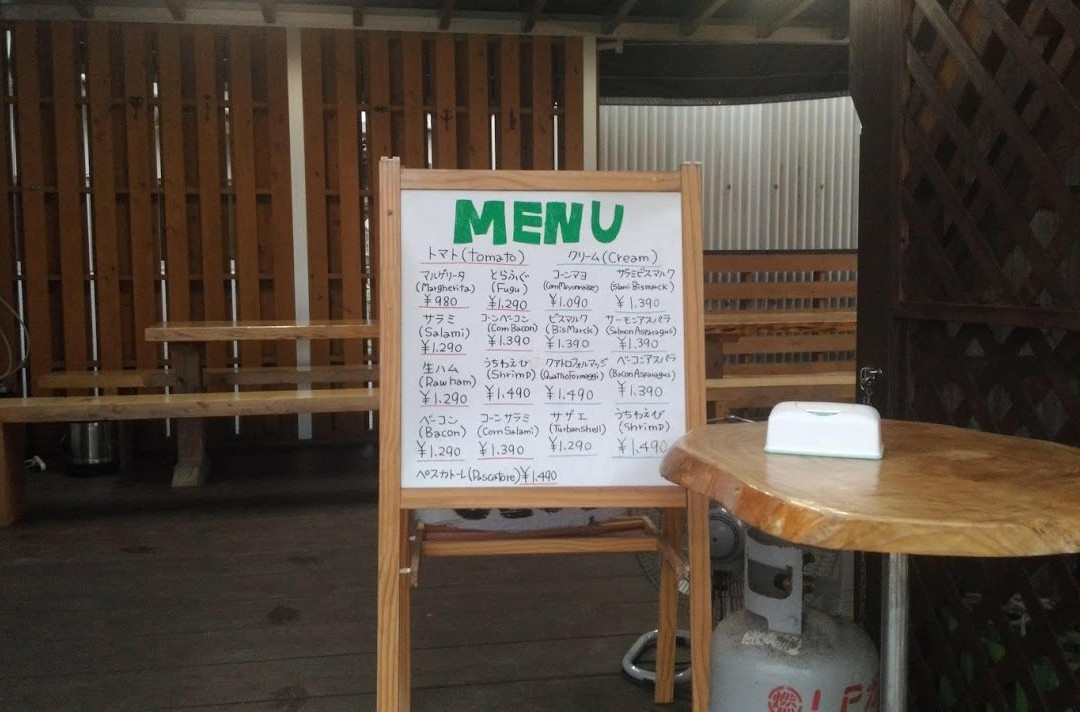 MENU
トマト(tomato) クリーム(Cream)
マルゲリータ とらふぐ コーンマヨ サラミビスマルク
(Margherita) (Fugu) (Corn Mayonnaise) (Slami Bismarck)
¥980 ¥1.290 ¥1.090 ¥1.390
サラミ コーンベーコン ビスマルク サーモンアスパラ
(Salami) (Corn Bacon) (BisMarck) (Salmon Asparagus)
¥1.290 ¥1.390 ¥1.390 ¥1.390
生ハム うちわえび クアトロフォルマッジ ベーコンアスパラ
(Raw ham) (Shrimp) (Quattro Formaggi) (Bacon Asparagus)
¥1.290 ¥1.490 ¥1.490 ¥1.390
ベーコン コーンサラミ サザエ うちわえび
(Bacon) (Corn Salami) (Turban Shell) (Shrimp)
¥1.290 ¥1.390 ¥1.290 ¥1.490
ペスカトーレ(Pascatore) ¥1.490
燃 LP